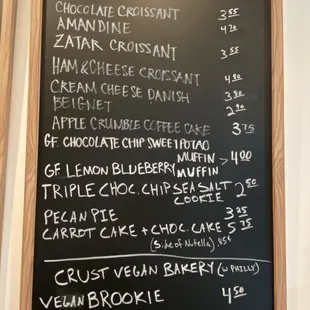 CHOCOLATE CROISSANT 3.55
AMANDINE 4.70
ZATAR CROISSANT 3.55
HAM & CHEESE CROISSANT 4.80
CREAM CHEESE DANISH 3.80
BEIGNET 2.90
APPLE CRUMBLE COFFEE CAKE 3.75
GF. CHOCOLATE CHIP SWEET POTAO MUFFIN > 4.00
GF LEMON BLUEBERRY MUFFIN
TRIPLE CHOC. CHIP SEA SALT COOKIE 2.50
PECAN PIE 3.25
CARROT CAKE + CHOC. CAKE 5.75
(Side of Nutella) .85¢
CRUST VEGAN BAKERY (W PHILLY)
VEGAN BROOKIE 4.50